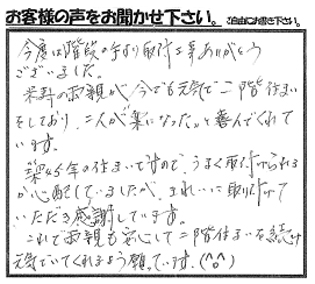 お客様の声をお聞かせ下さい。ご自由にお書き下さい。
今度は階段の手すり取付工事ありがとう
ございました。
米寿の両親が今でも元気で二階住まい
をしており、二人が楽になったと喜んでくれて
います。
築45年の住まいですので、うまく取付けられる
か心配していましたが、きれいに取り付けて
いただき感謝しています。
これで両親も安心して二階住まいを続け
元気でいてくれるよう願っています。(^o^)